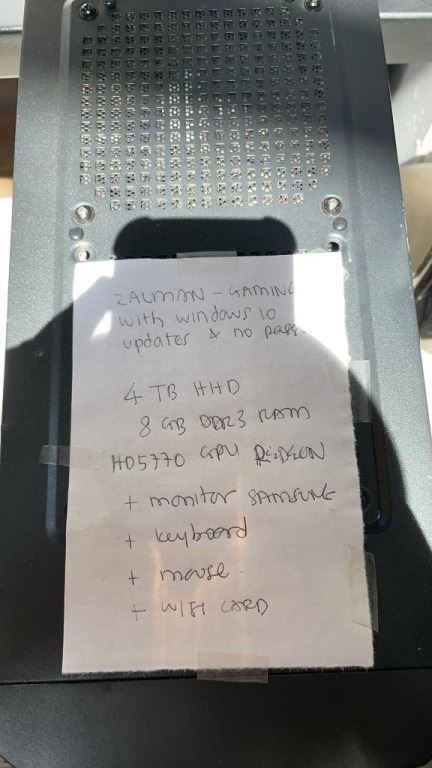 ZALMAN - GAMING
with windows 10
updates & no pass
4 TB HHD
8 GB DDR3 RAM
HD5770 GPU RADEON
+ monitor SAMSUNG
+ keyboard
+ mouse
+ WIFI CARD